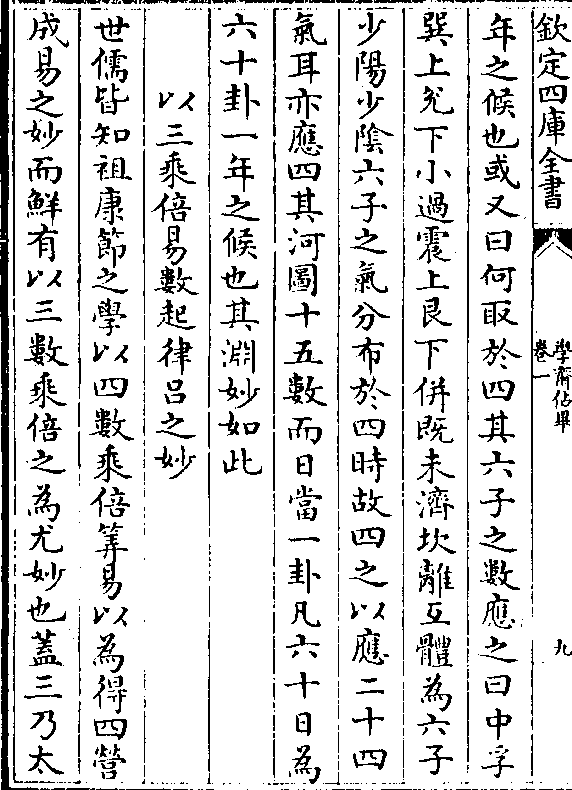 欽定四庫全書
學齋佔畢
卷一
九
年之候也或又曰何取於四其六子之數應之曰中孚
巽上兊下小過震上艮下併既未濟坎離互體為六子
少陽少陰六子之氣分布於四時故四之以應二十四
氣耳亦應四其河圖十五數而日當一卦凡六十日為
六十卦一年之候也其淵妙如此
以三乘倍易數起律呂之妙
世儒皆知祖康節之學以四數乘倍筭易以為得四營
成易之妙而鮮有以三數乘倍之為尤妙也蓋三乃太